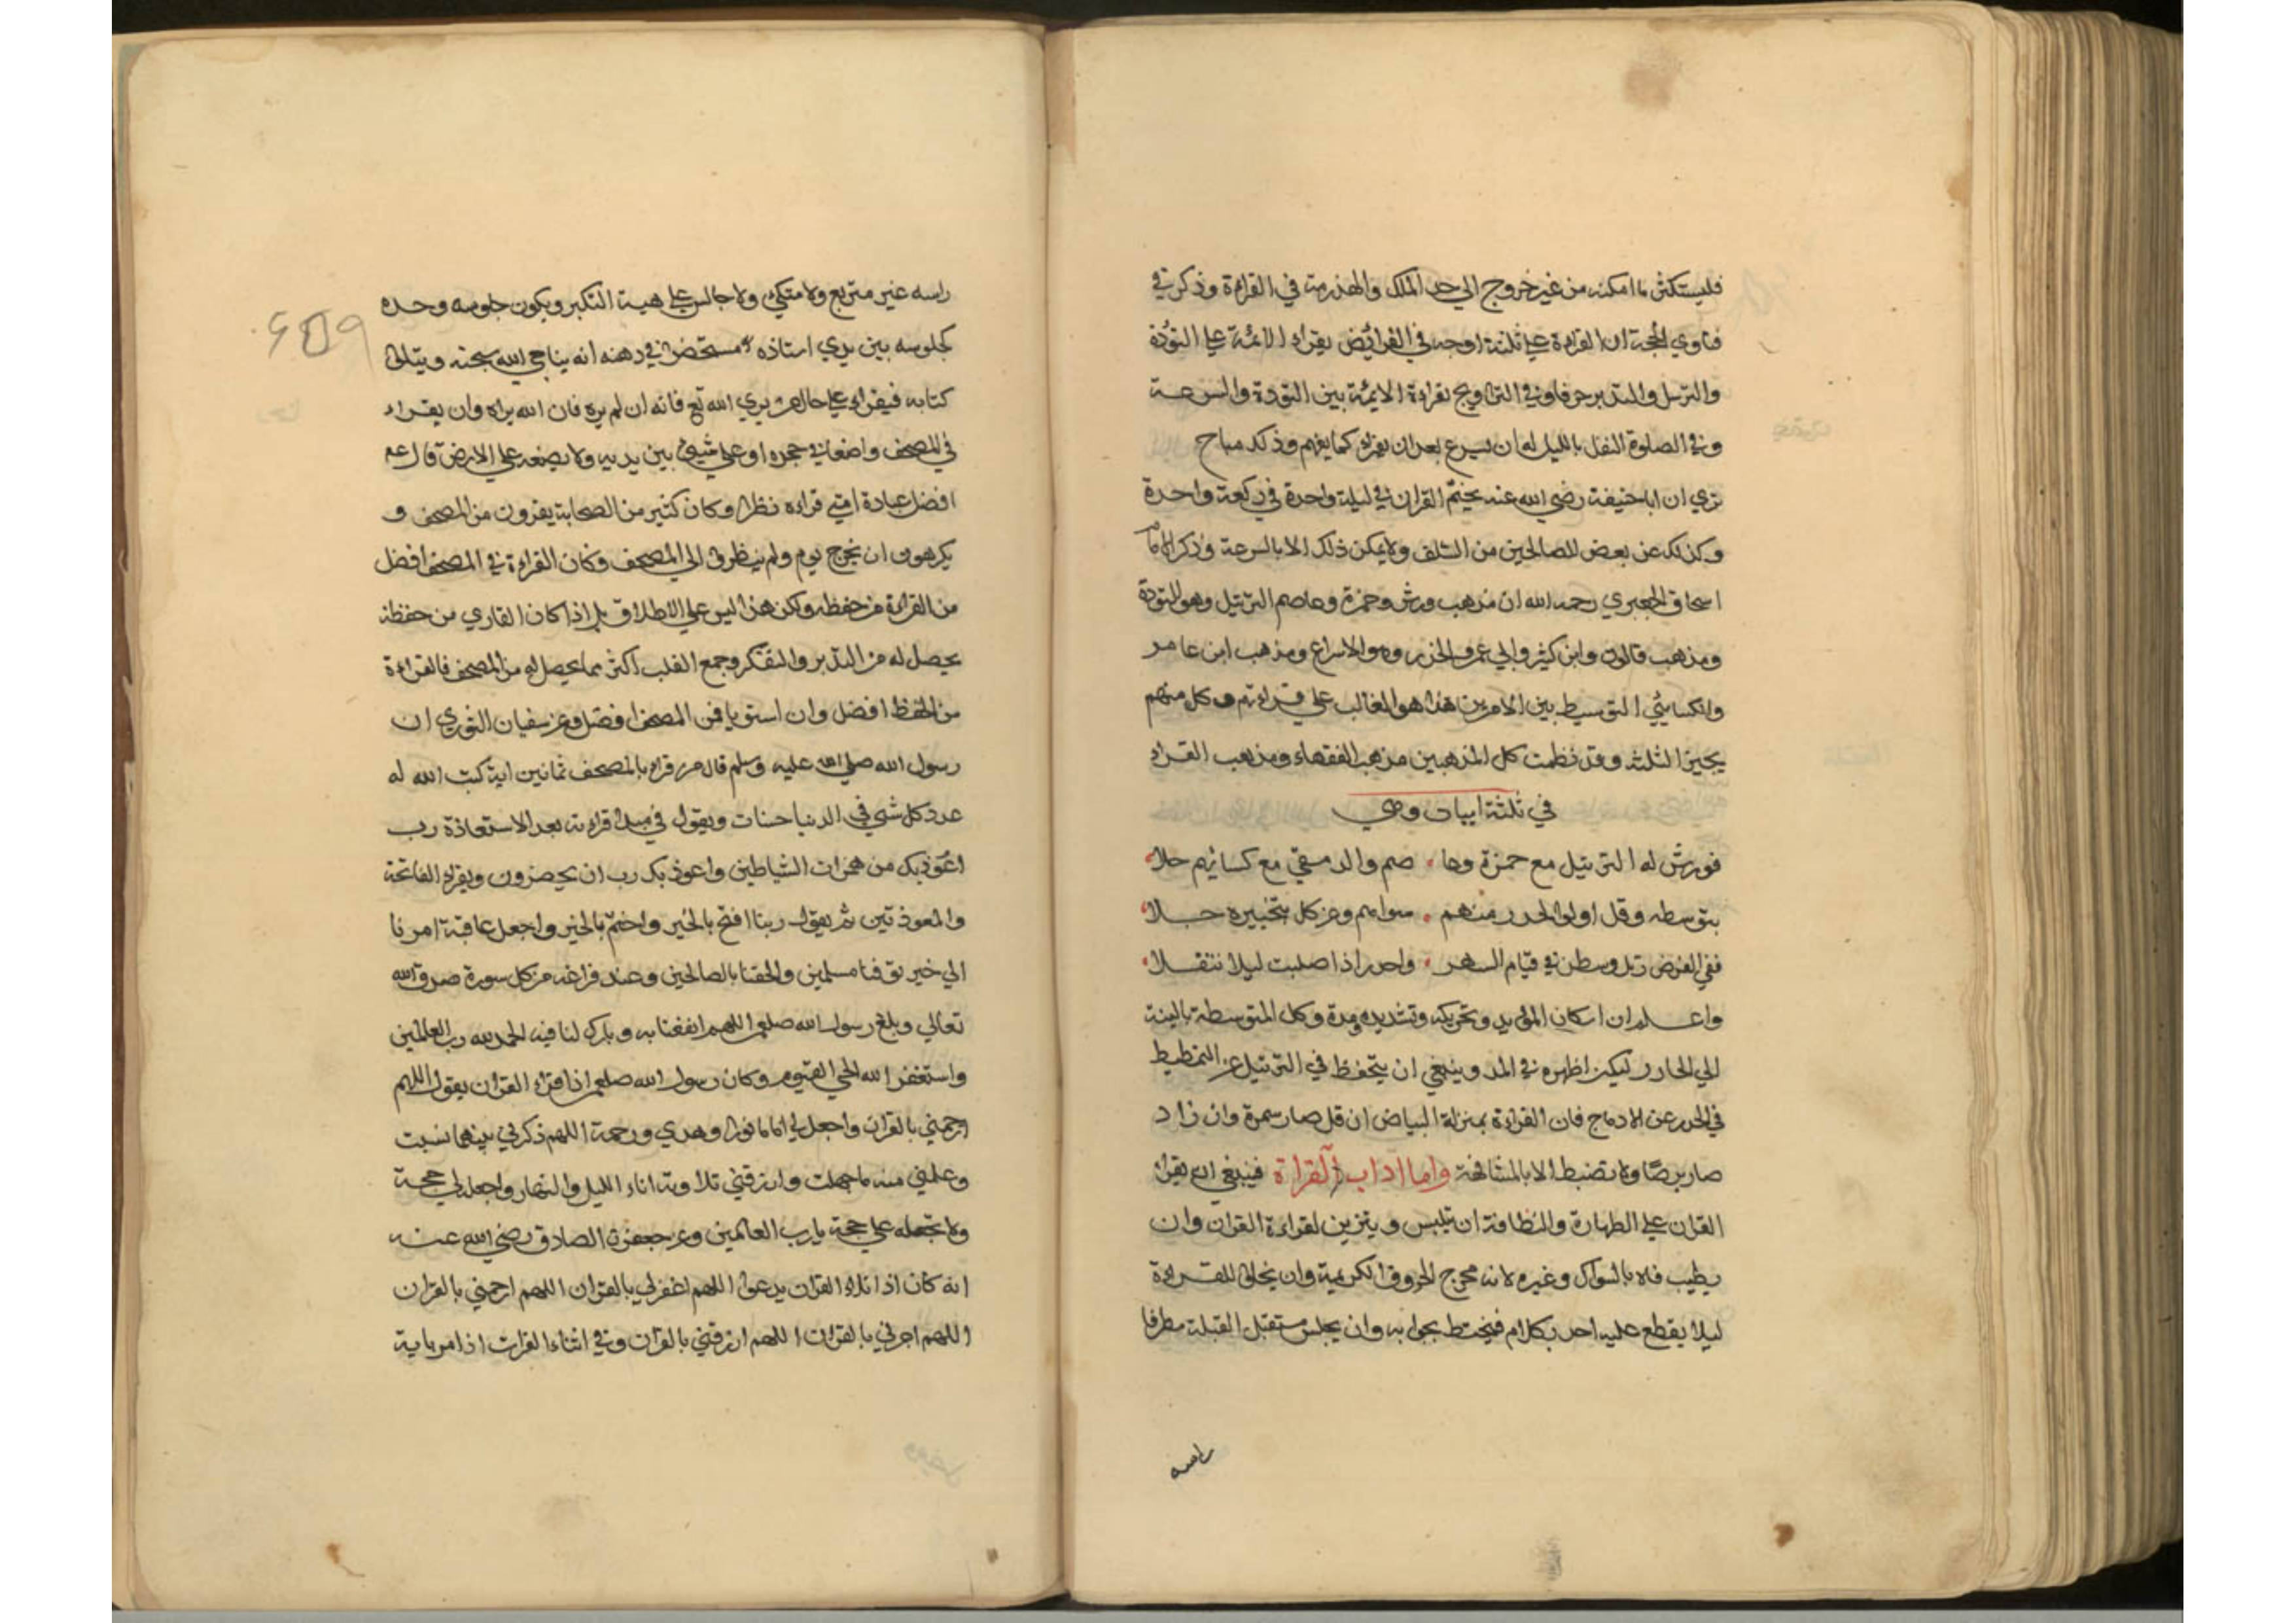 فليستكثر ما امكنه من غير خروج الي حد الملل والهذرمة في القراءة وذكر في
فتاوي الحجة ان القراءة علي ثلثة اوجه في الفرائض يقراء الائمة علي التؤدة
والترسل والتدبر حرفا وفي التراويح بقراءة الايمة بين التؤدة والسرعة
وفي الصلوة النفل بالليل له ان يسرع بعد ان يقراء كما يفهم وذلك مباح
تري ان ابا حنيفة رضي الله عنه يختم القران في ليلة واحدة في ركعة واحدة
وكذلك عن بعض الصالحين من السلف ولا يمكن ذلك الا بالسرعة وذكر الامام
اسحاق الجعبري رحمه الله ان مذهب ورش وحمزة وعاصم الترتيل وهو التودة
ومذهب قالون وابن كثير وابي عمرو الحدر وهو الاسراع ومذهب ابن عامر
والكسائي التوسيط بين الامرين هذا هو الغالب علي قراءتهم وكل منهم
يجيز الثلثة وقد نظمت كل المذهبين مذهب الفقهاء ومذهب القراء
في ثلثة ابيات وهي
فورش له الترتيل مع حمزة وعا صم والدمشقي مع كسائهم حلا
بتوسطه وقل اولوا الحدر منهم سواهم وعن كل بتخييره جلا
ففي الفرض رتل وسطن في قيام السهر واحدر اذا صليت ليلا تنفلا
واعلم ان اسكان المؤيد وتحريكه وتشديده ومدة وكل المتوسطة بالينة
الي الحادر ليكن اظهره في المد وينبغي ان يتحفظ في الترتيل عن التمطيط
في الحدر عن الادماج فان القراءة بمنزلة البياض ان قل صار سمرة وان زاد
صار برصا ولا تضبط الا بالمشافهة واما اداب القراة فينبغي ان يقراء
القران علي الطهارة والنظافة ان يلبس ويتزين لقراءة القران وان
يطيب فاه بالسواك وغيره لانه مخرج الحروف الكريمة وان يخلي للقراءة
ليلا يقطع عليه احد بكلام فيختلط بجوابه وان يجلس مستقبل القبلة مطرفا
راسه
راسه غير متربع ولا متكي ولا جالس علي هيئة التكبر ويكون جلوسه وحده
كجلوسه بين يدي استاذه مستحضرا في ذهنه انه يناجي الله سبحنه ويتلوا
كتابه فيقراء علي حال من يري الله تع فانه ان لم يره فان الله يراه وان يقراء
في المصحف واضعا في حجره او علي شيئ بين يديه ولا يضعه علي الارض قال عم
افضل عبادة امتي قراءه نظرا وكان كثير من الصحابة يقرون من المصحف و
يكرهون ان يخرج يوم ولم ينظروا الي المصحف وكان القراءة في المصحف افضل
من القراءة من حفظه ولكن هذا ليس علي الاطلاق بل اذا كان القاري من حفظه
يحصل له من التدبر والتفكر وجمع القلب اكثر مما يحصل له من المصحف فالقراءة
من الحفظ افضل وان استويا فمن المصحف افضل وعن سفيان الثوري ان
رسول الله صلي الله عليه وسلم قال من قراء بالمصحف ثمانين اية كتب الله له
عدد كل شي في الدنيا حسنات ويقول في مبدا قراءته بعد الاستعاذة رب
اعوذ بك من همزات الشياطين واعوذ بك رب ان يحضرون ويقراء الفاتحة
والمعوذتين ثم يقول ربنا افتح بالخير واختم بالخير واجعل عاقبة امرنا
الي خير توفنا مسلمين والحقنا بالصالحين وعند فراغه من كل سورة صدق الله
تعالي وبلغ رسول الله صلعم اللهم انفعنا به وبارك لنا فيه الحمد لله رب العالمين
واستغفر الله الحي القيوم وكان رسول الله صلعم اذا قراء القران يقول اللهم
ارحمني بالقران واجعل لي اماما نورا وهدي ورحمة اللهم ذكرني منه ما نسيت
وعلمني منه ما جهلت وارزقني تلاوته اناء الليل والنهار واجعله لي حجة
ولا تجعله علي حجة يارب العالمين وعن جعفر الصادق رضي الله عنه
انه كان اذا تلاء القران يدعوا اللهم اغفر لي بالقران اللهم ارحمني بالقران
اللهم اجرني بالقران اللهم ارزقني بالقران وفي اثناء القرات اذا مر باية